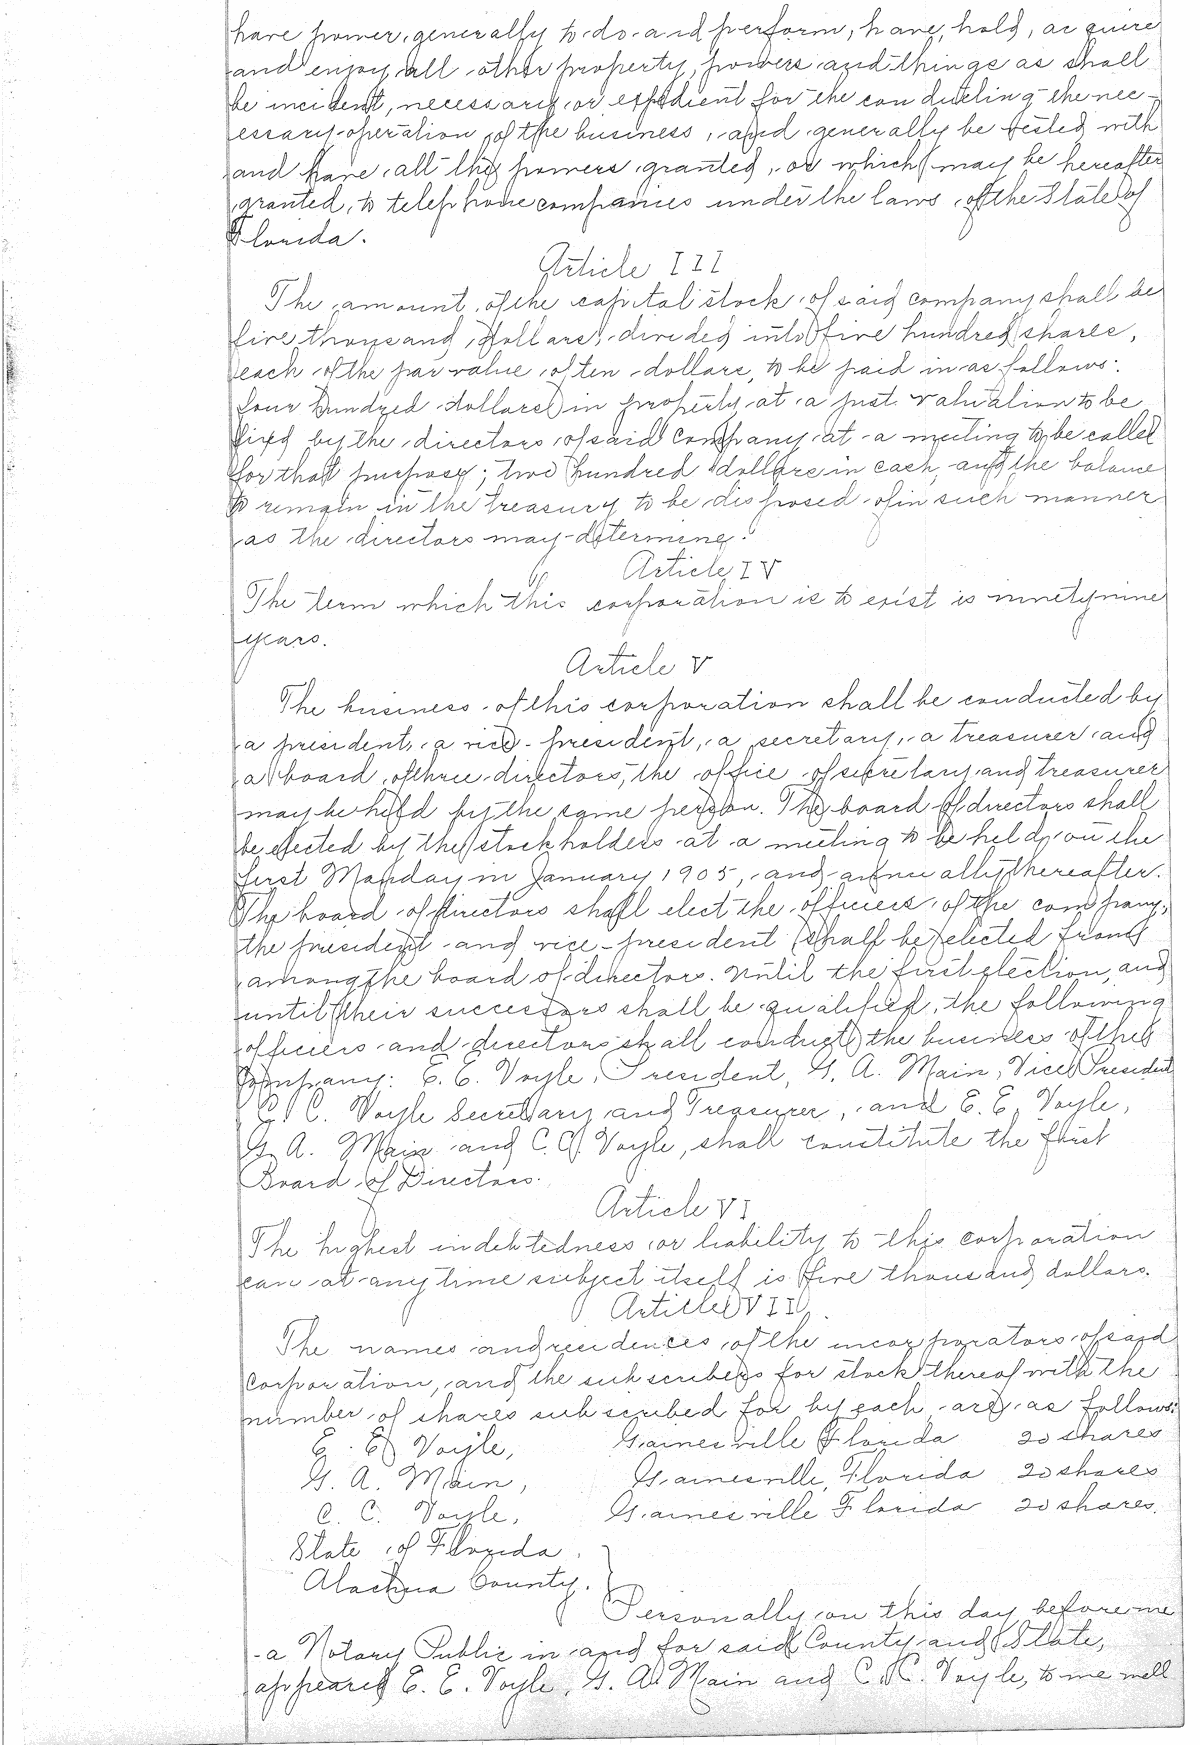 have power, generally to do and perform, have, hold, acquire
and enjoy all other property, powers and things as shall
be incident, necessary or expedient for the conducting the nec-
essary operation of the business, and generally be vested with
and have all the powers granted, or which may be hereafter
granted, to telephone companies under the laws of the State of
Florida.
Article III
The amount of the capital stock of said company shall be
five thousand dollars, divided into five hundred shares,
each of the par value of ten dollars, to be paid in as follows:
four hundred dollars in property at a just valuation to be
fixed by the directors of said company at a meeting to be called
for that purpose; two hundred dollars in cash, and the balance
to remain in the treasury to be disposed of in such manner
as the directors may determine.
Article IV
The term which this corporation is to exist is ninetynine
years.
Article V
The business of this corporation shall be conducted by
a president, a vice-president, a secretary, a treasurer and
a board of three directors, the office of secretary and treasurer
may be held by the same person. The board of directors shall
be elected by the stockholders at a meeting to be held on the
first Monday in January 1905, and annually thereafter.
The board of directors shall elect the officers of the company,
the president and vice-president shall be elected from
among the board of directors. Until the first election, and
until their successors shall be qualified, the following
officiers and directors shall conduct the business of the
Company: E. E. Voyle, President, G. A. Main, Vice President
C. C. Voyle Secretary and Treasurer, and E. E. Voyle,
G. A. Main and C. C. Voyle, shall constitute the first
Board of Directors.
Article VI
The highest indebtedness or liability to this corporation
can at any time subject itself is five thousand dollars.
Article VII
The names and residences of the incorporators of said
corporation, and the subscribers for stock thereof with the
number of shares subscribed for by each are as follows:
E. E. Voyle, Gainesville Florida 20 shares
G. A. Main, Gainesville, Florida 20 shares
C. C. Voyle, Gainesville Florida 20 shares.
State of Florida.
Alachua County. }
Personally on this day before me
a Notary Public in and for said County and State,
appeared E. E. Voyle, G. A. Main and C. C. Voyle, to me well